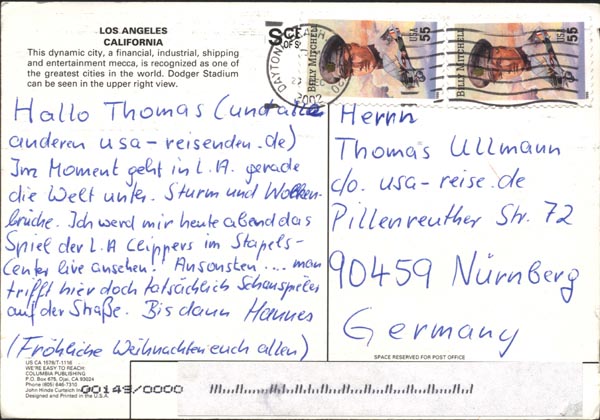 LOS ANGELES
CALIFORNIA
This dynamic city, a financial, industrial, shipping
and entertainment mecca, is recognized as one of
the greatest cities in the world. Dodger Stadium
can be seen in the upper right view.
Hallo Thomas (und alle
anderen usa-reisenden.de)
Im Moment geht in L.A. gerade
die Welt unter. Sturm und Wolken-
brüche. Ich werd mir heute abend das
Spiel der L.A Clippers im Stapels-
Center live ansehen. Ansonsten .... man
trifft hier doch tatsächlich Schauspieler
auf der Straße. Bis dann Hannes
(Fröhliche Weihnachten euch allen)
US CA 1578/T-1116
WE'RE EASY TO REACH:
COLUMBIA PUBLISHING
P.O. Box 675, Ojai, CA 93024
Phone (805) 646-7310
John Hinde Curteich
00149/0000
DAYTON
2002
BILLY MITCHELL
USA
55
BILLY MITCHELL
USA
55
Herrn
Thomas Ullmann
c/o. usa-reise.de
Pillenreuther Str. 72
90459 Nürnberg
Germany
SPACE RESERVED FOR POST OFFICE